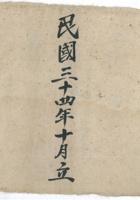 民國三十四年十月立